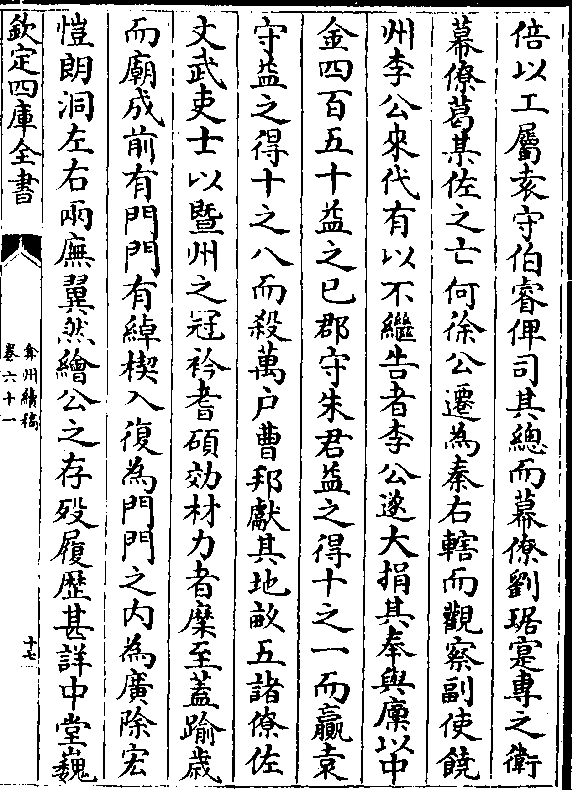 倍以工屬袁守伯睿俾司其總而幕僚劉琚寔專之衛
幕僚葛某佐之亡何徐公遷為秦右轄而觀察副使饒
州李公來代有以不繼告者李公遂大捐其奉與廩以中
金四百五十益之已郡守朱君益之得十之一而贏袁
守益之得十之八而殺萬户曹邦獻其地畝五諸僚佐
文武吏士以暨州之冠衿耆碩効材力者麇至蓋踰歳
而廟成前有門門有綽楔入復為門門之内為廣除宏
愷朗洞左右兩廡翼然繪公之存殁履歴甚詳中堂巍
欽定四庫全書
弇州續稿
卷六十一
十七